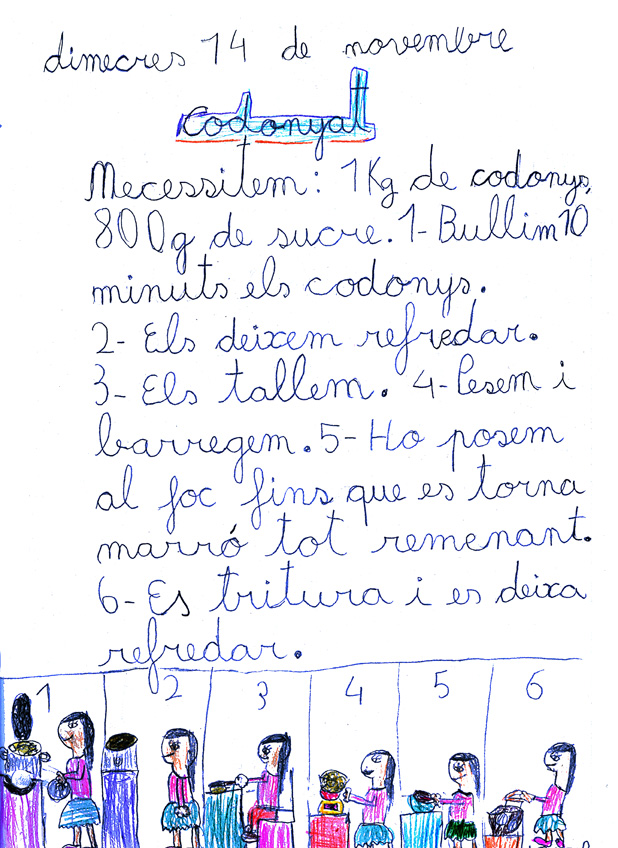 dimecres 14 de novembre
Codonyat
Necessitem: 1Kg de codonys,
800g de sucre. 1- Bullim 10
minuts els codonys.
2- Els deixem refredar.
3- Els tallem. 4- Pesem i
barregem. 5- Ho posem
al foc fins que es torna
marró tot remenant.
6- Es tritura i es deixa
refredar.
1 2 3 4 5 6